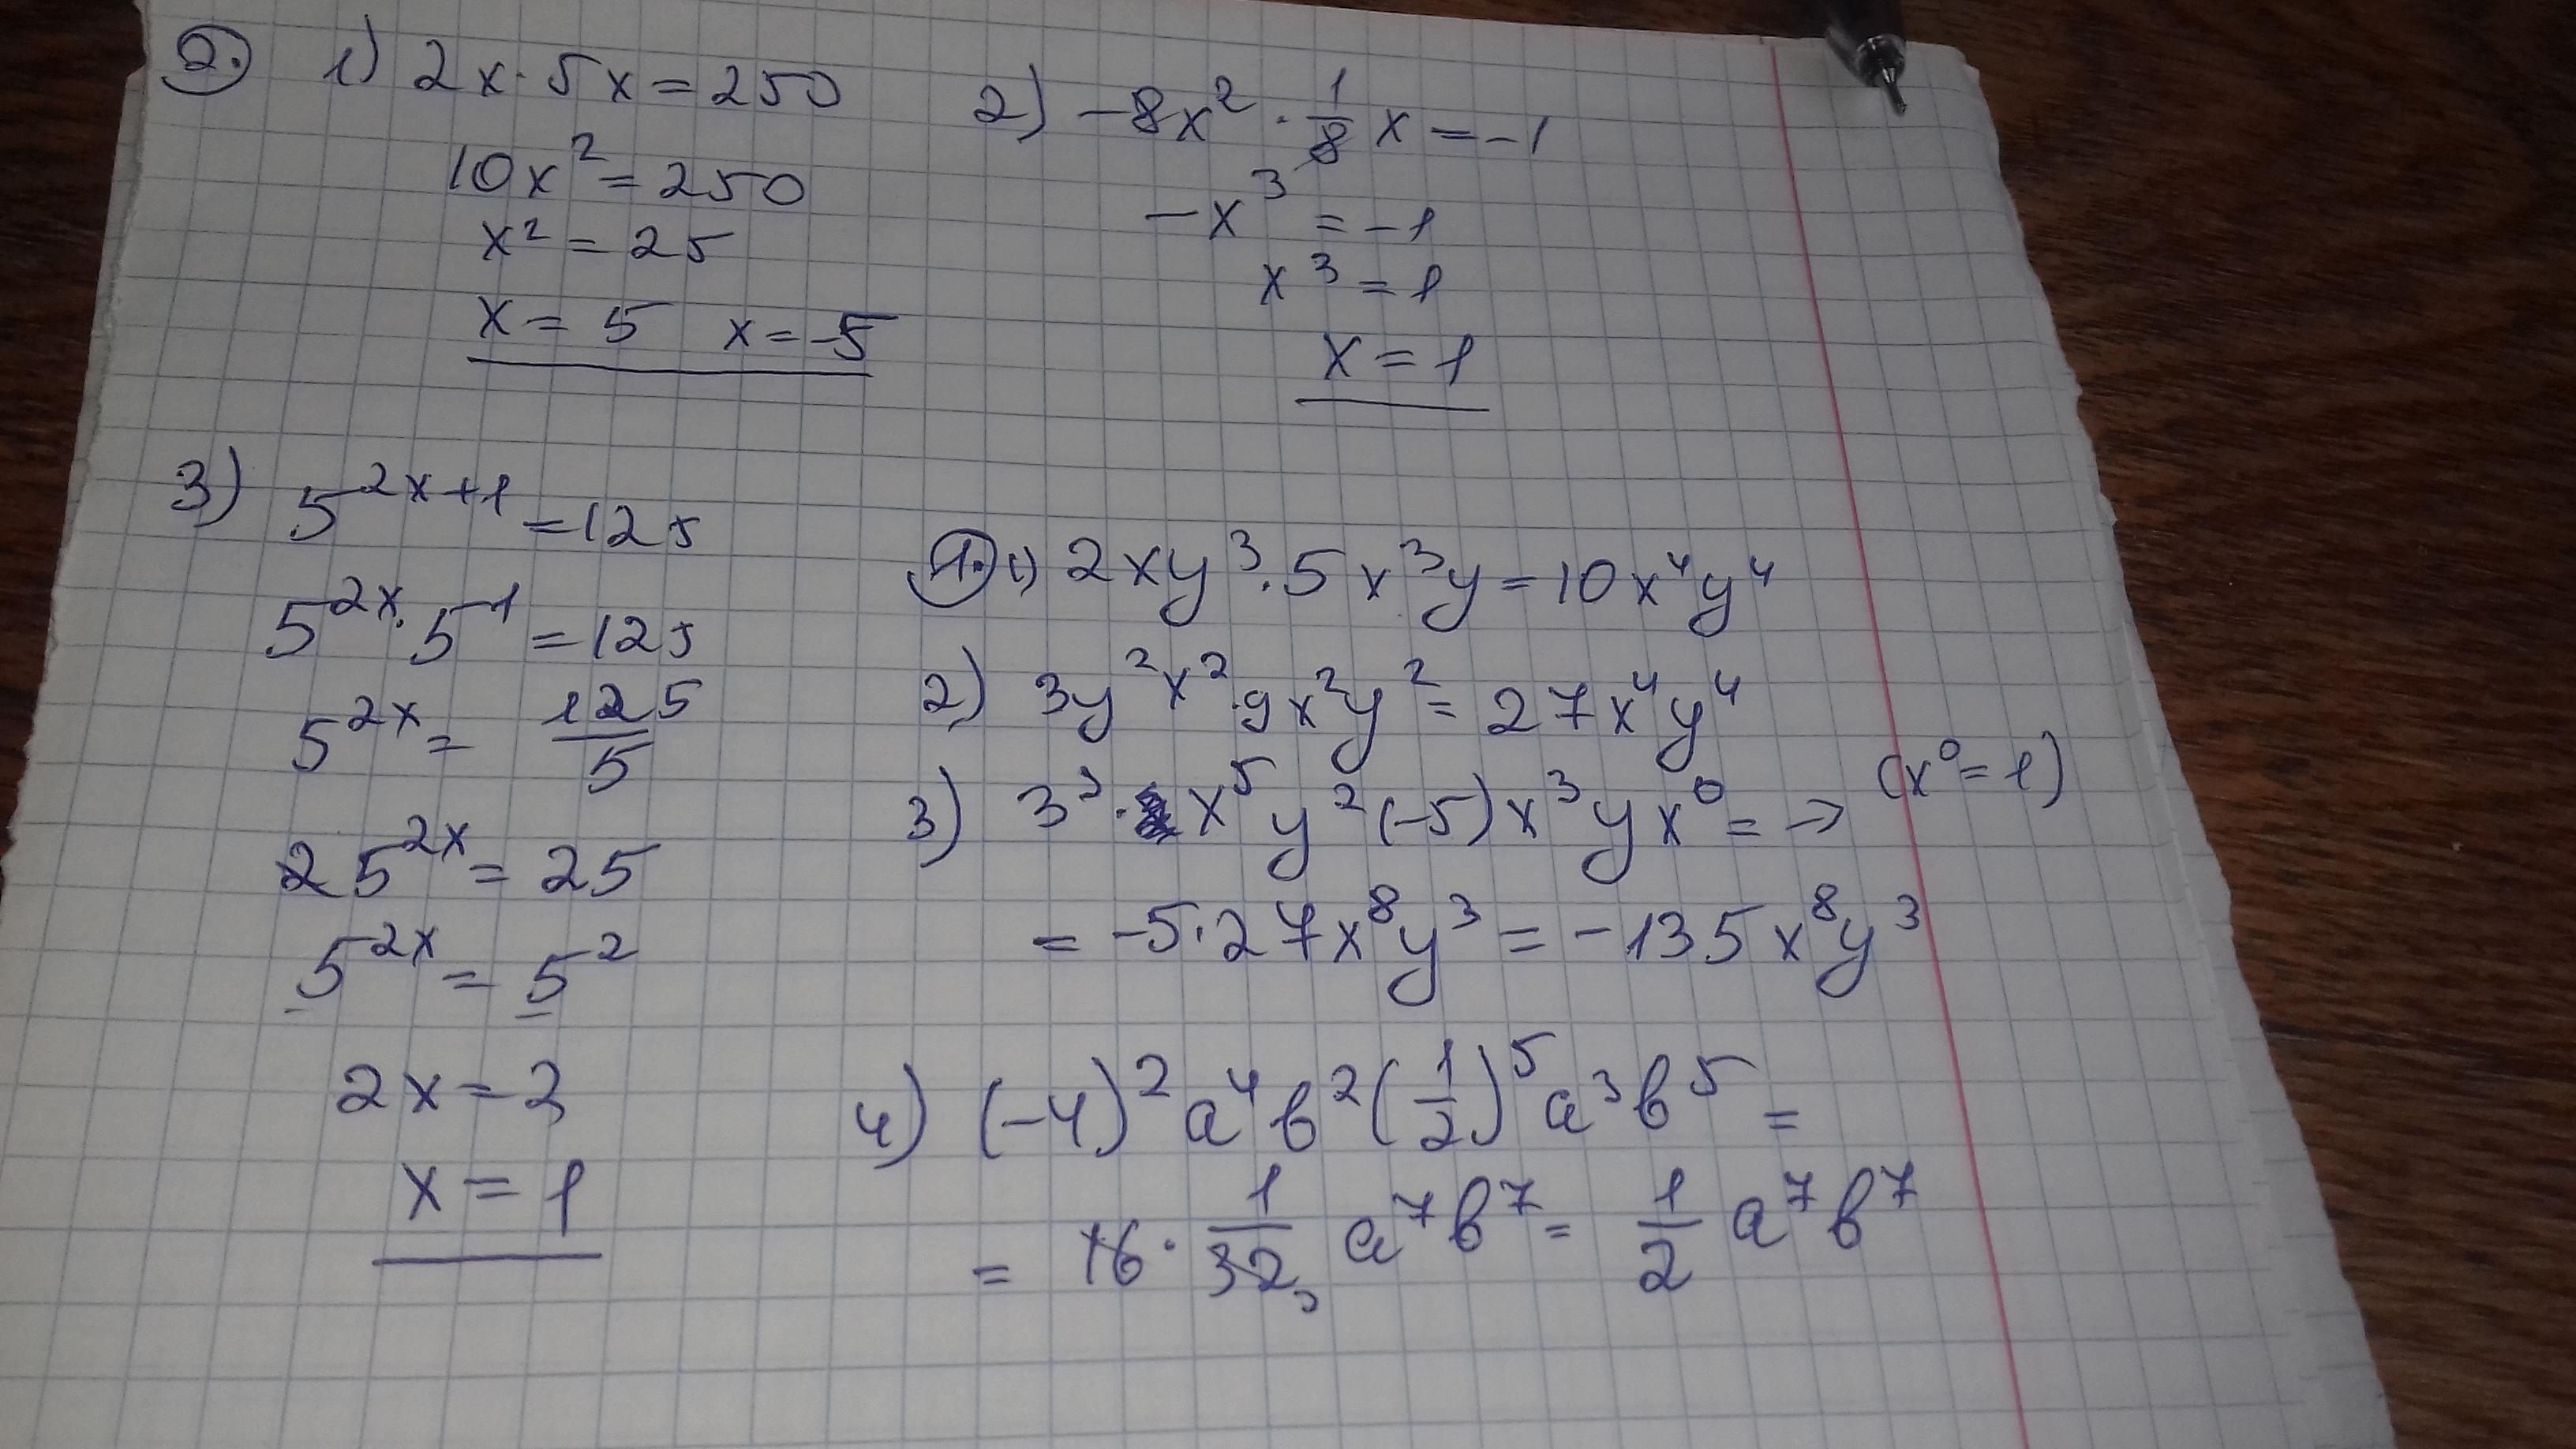 2. 1) 2x·5x=250
10x²=250
x²=25
x=5 x=-5
2) -8x²·1/8x=-1
-x³=-1
x³=1
x=1
3) 5^(2x+1)=125
5^(2x)·5^1=125
5^(2x)=125/5
25^(2x)=25
5^(2x)=5²
2x=2
x=1
1. 1) 2xy³·5x³y=10x⁴y⁴
2) 3y²x²·9x²y²=27x⁴y⁴
3) 3³·x⁵y²(-5)x³yx⁰=→(x⁰=1)
=-5·27x⁸y³=-135x⁸y³
4) (-4)²a⁴b²(1/2)⁵a³b⁵=
=16·1/32a⁷b⁷=1/2a⁷b⁷